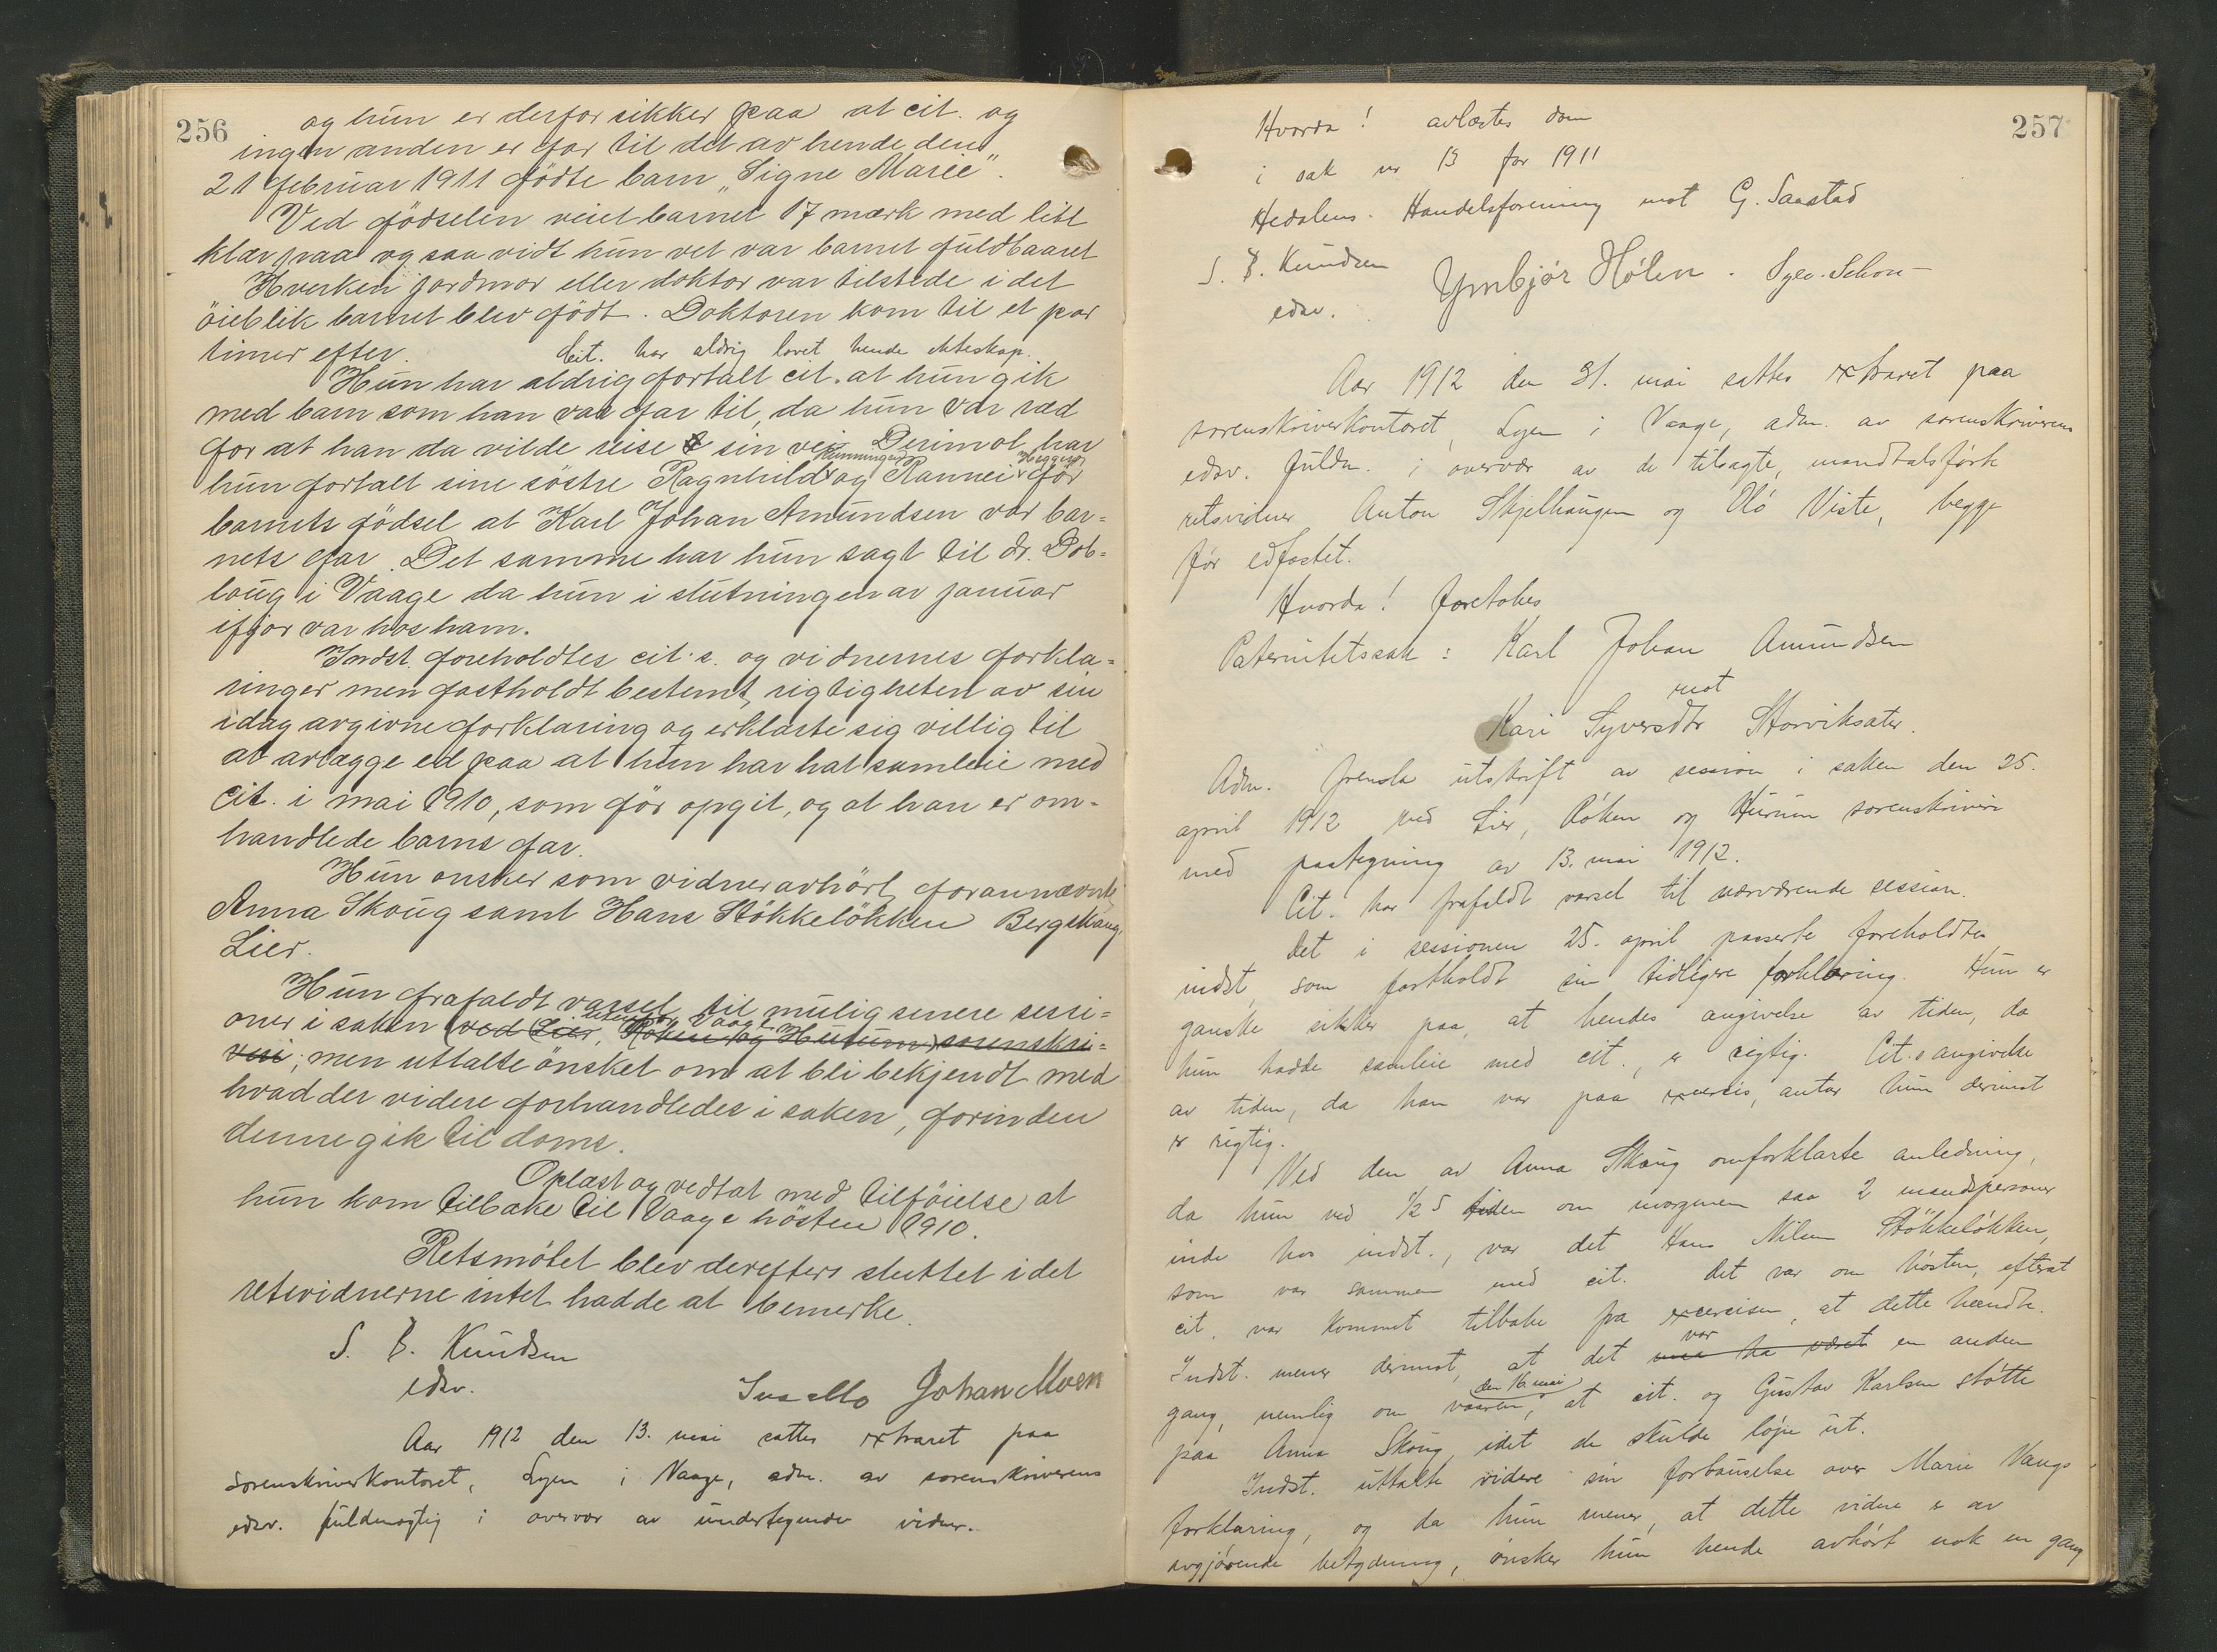 256
og hun er derfor sikker paa at cit. og
ingen anden er far til det av hende den
21 februar 1911 födte barn „Signe Marie".
Ved födselen veiet barnet 17 mærk med litt
klær paa og saa vidt hun vet var barnet fuldbaaret
Hverken jordmor eller doktor var tilstede i det
öieblik barnet blev födt. Doktoren kom til et par
timer efter. Cit. har aldrig lovet hende ekteskap.
Hun har aldrig fortalt cit. at hun gik
med barn som han var far til, da hun var ræd
for at han da vilde reise sin vei. Derimot har
hun fortalt sine söstre Ragnhild og Rannei för
barnets födsel at Karl Johan Amundsen var bar=
nets far. Det samme har hun sagt til dr. Dob=
loug i Vaage da hun i slutningen av januar
ifjor var hos ham.
Indst. foreholdtes cit.s. og vidnernes forkla=
ringer men fastholdt bestemt rigtigheten av sin
idag avgivne forklaring og erklærte sig villig til
at avlægge ed paa at hun har hat samleie med
cit. i mai 1910, som för opgit, og at han er om=
handlede barns far.
Hun ønsker som vidner avhört forannævnte
Anna Skoug samt Hans Stökkelökken Bergskaug,
Lier.
Hun frafaldt varsel til mulig senere sessi=
oner i saken utenfor Vaage (ved Lier, Röken og Hurum) sorenskri=
veri; men uttalte önsket om at bli bekjendt med
hvad der videre forhandledes i saken, forinden
denne gik til doms.
Oplæst og vedtat med tilföielse at
hun kom tilbake til Vaage hösten 1910.
Retsmötet blev derefter sluttet idet
retsvidnerne intet hadde at bemerke.
S. B. Knudsen
edsv.
Johan Moen
Aar 1912 den 13. mai sattes extraret paa
sorenskriverkontoret, Sygen i Vaage, adm. av sorenskriverens
edsv. fuldmægtig i overvær av undertegnede vidner.
257
Hvorda! avlæstes dom
i sak nr 13 for 1911
Hedalens Handelsforening mot G. Saastad
S. B. Knudsen
edsv.
Ymbjør Hølen.
Aar 1912 den 31. mai sattes extraret paa
sorenskriverkontoret, Sygen i Vaage, adm. av sorenskriverens
edsv. fuldm. i overvær av de tilsagte, mandtalsførte
retsvidner Anton Skjelhaugen og Ola Viste, begge
før edfæstet.
Hvorda! foretokes
Paternitetssak: Karl Johan Amundsen
mot
Kari Syversdtr Storviksæter.
Adm. fremla utskrift av session i saken den 25.
april 1912 ved Lier, Röken og Hurum sorenskriveri
med paategning av 13. mai 1912.
Cit. har frafaldt varsel til nærværende session.
Det i sessionen 25. april passerte foreholdtes
indst, som fastholdt sin tidligere forklaring. Hun er
ganske sikker paa, at hendes angivelse av tiden, da
hun hadde samleie med cit., er rigtig. Cit.s angivelse
av tiden, da han var paa exercis, antar hun derimot
er rigtig.
Ved den av Anna Skoug omforklarte anledning,
da hun ved 1/2 5 tiden om morgenen saa 2 mandspersoner
inde hos indst., var det Hans Nilsen Stökkelökken,
som var sammen med cit. Det var om hösten, efterat
cit. var kommet tilbake fra exercisen, at dette hændte.
Indst. mener derimot, at det var maa ha været en anden
gang, nemlig om vaaren, den 16. mai, at cit. og Gustav Karlsen støtte
paa Anna Skoug idet de skulde løpe ut.
Indst. uttalte videre sin forbauselse over Marie Vangs
forklaring, og da hun mener, at dette vidne er av
avgjörende betydning, ønsker hun hende avhört nok en gang